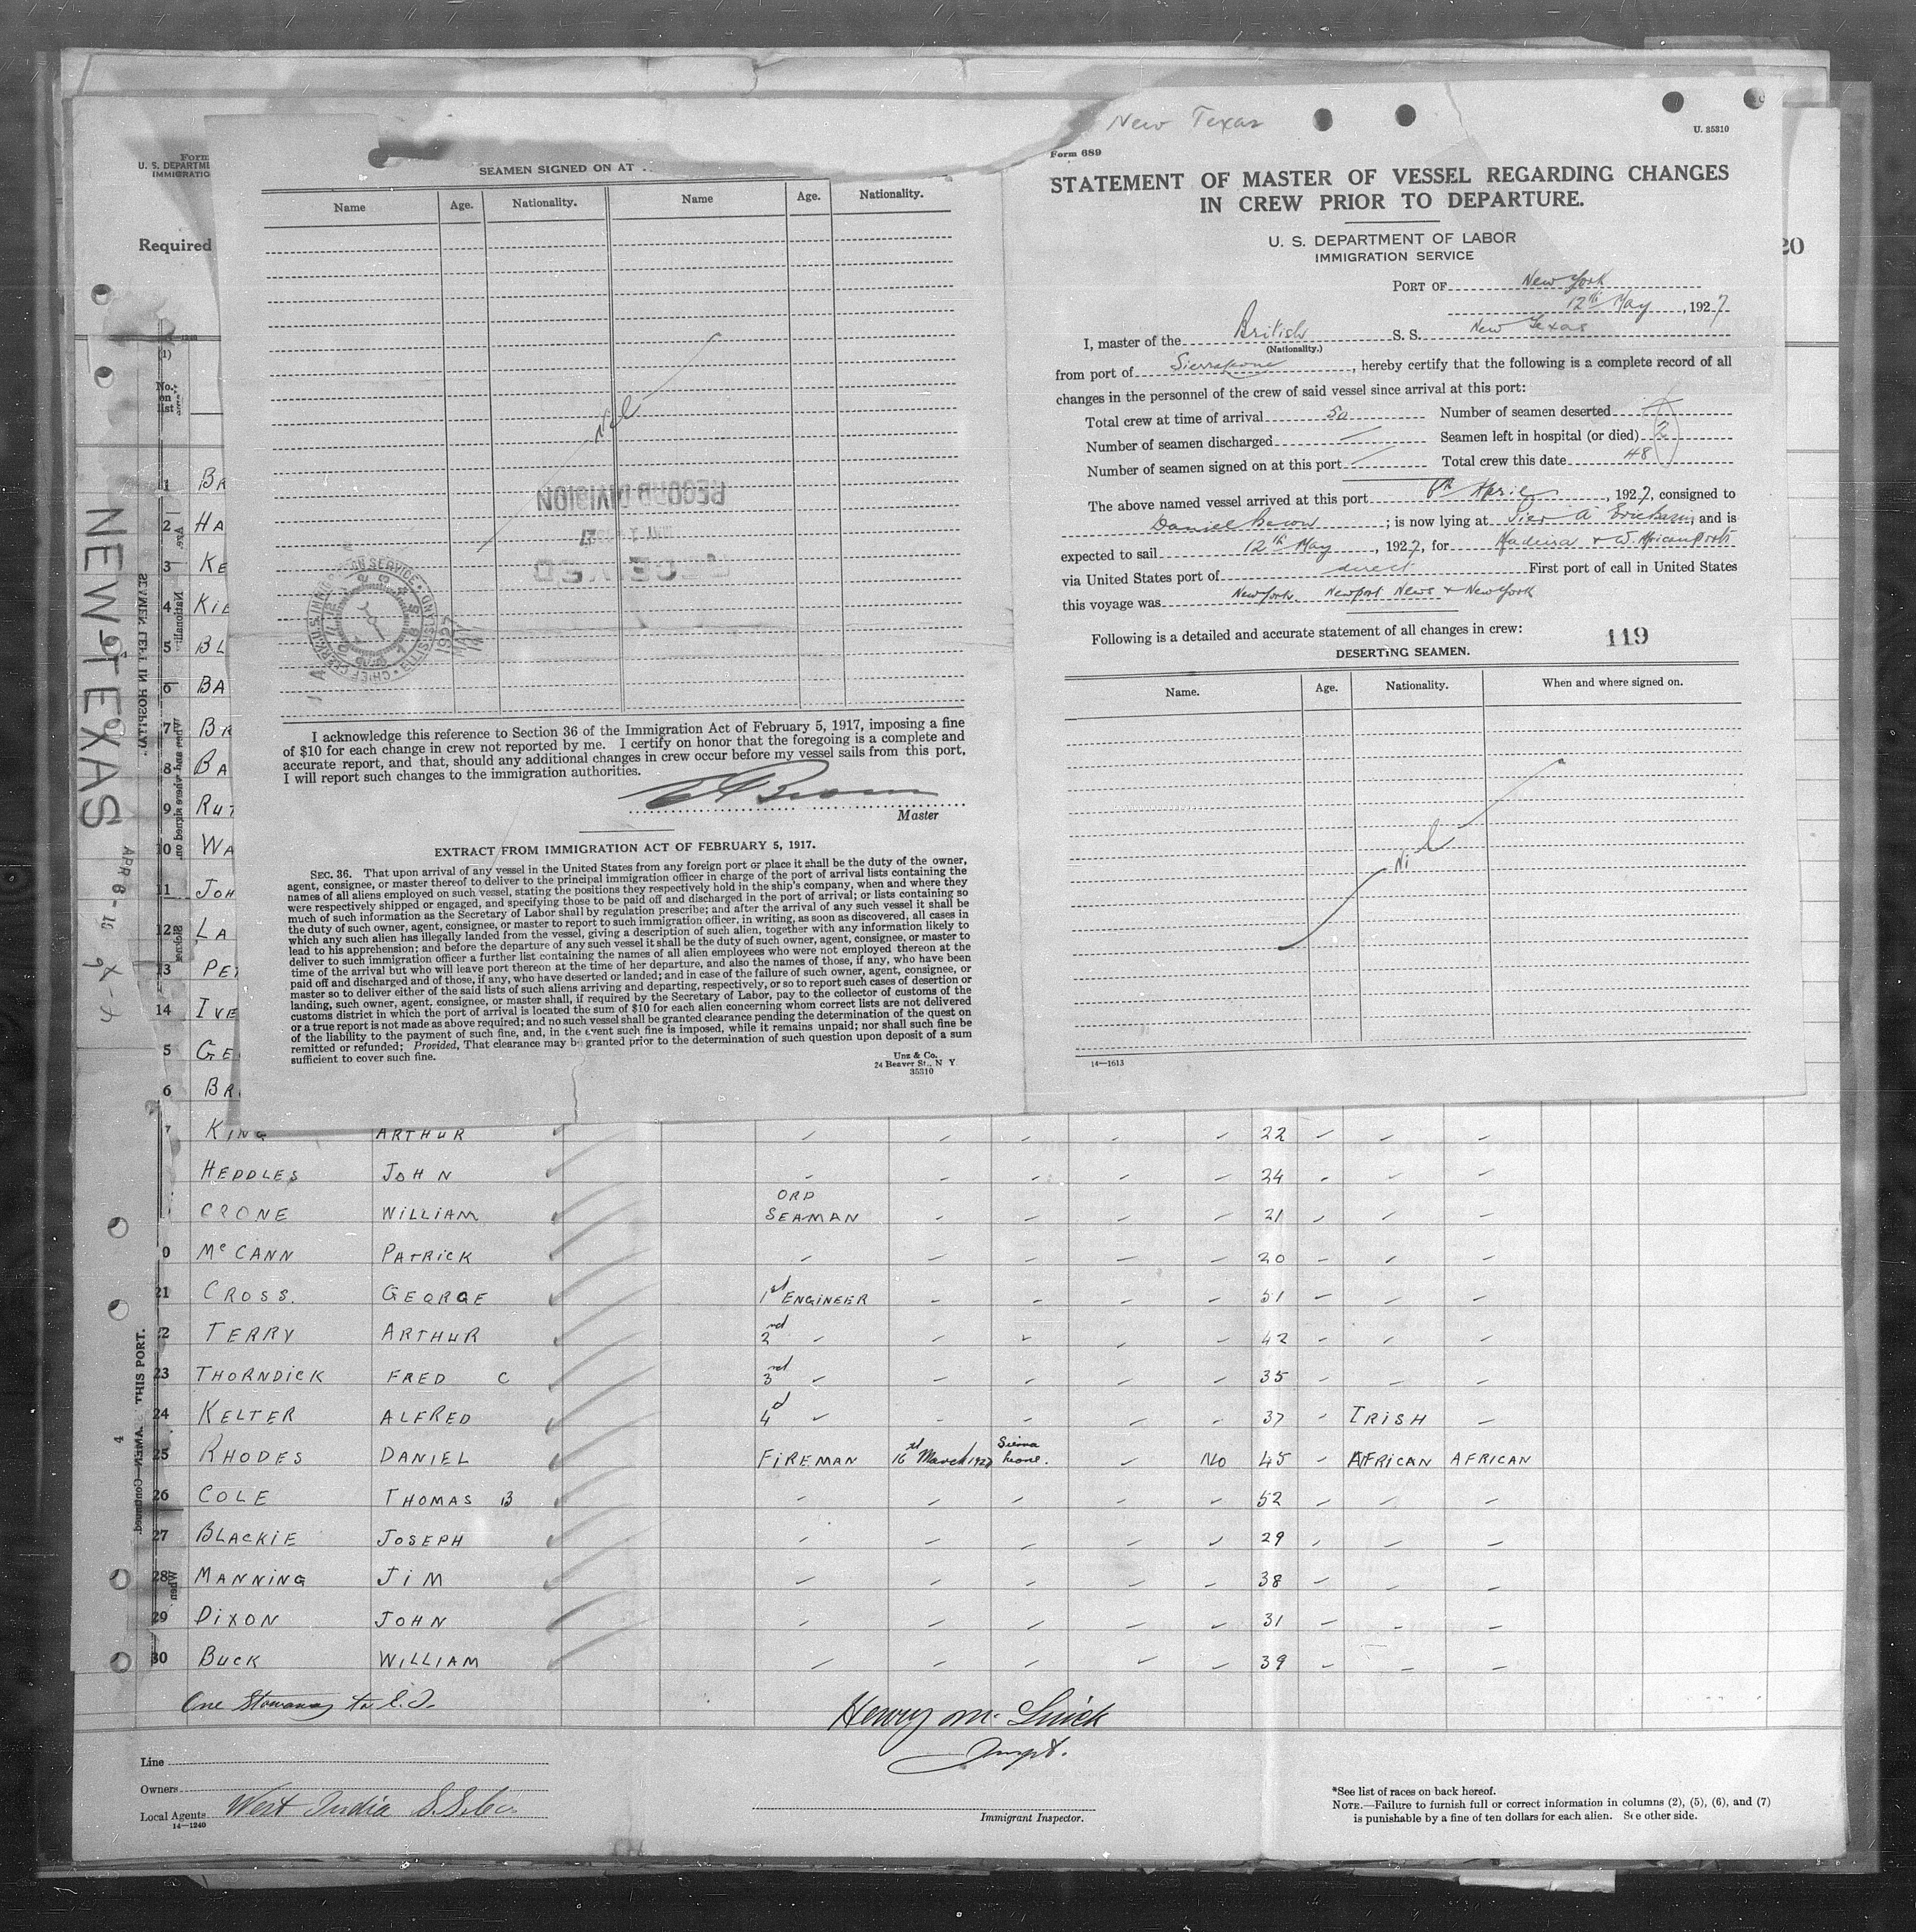 New Texas
U. 35310
Form 689
STATEMENT OF MASTER OF VESSEL REGARDING CHANGES
IN CREW PRIOR TO DEPARTURE.
U. S. DEPARTMENT OF LABOR
IMMIGRATION SERVICE
PORT OF New York
12th May, 1927
I, master of the British S. S. New Texas
(Nationality.)
from port of Sierra Leone, hereby certify that the following is a complete record of all
changes in the personnel of the crew of said vessel since arrival at this port:
Total crew at time of arrival 50 Number of seamen deserted
Number of seamen discharged — Seamen left in hospital (or died) 2
Number of seamen signed on at this port — Total crew this date 48
The above named vessel arrived at this port 8th April, 1927, consigned to
Daniel Bacon; is now lying at Pier A and is
expected to sail 12th May, 1927, for Madeira & W. African ports
via United States port of direct First port of call in United States
this voyage was New York, Newport News & New York
Following is a detailed and accurate statement of all changes in crew:
119
DESERTING SEAMEN.
Name. Age. Nationality. When and where signed on.
Nil
14—1613
SEAMEN SIGNED ON AT
Name Age. Nationality. Name Age. Nationality.
Nil
RECORD DIVISION
RECEIVED
I acknowledge this reference to Section 36 of the Immigration Act of February 5, 1917, imposing a fine
of $10 for each change in crew not reported by me. I certify on honor that the foregoing is a complete and
accurate report, and that, should any additional changes in crew occur before my vessel sails from this port,
I will report such changes to the immigration authorities.
Master
EXTRACT FROM IMMIGRATION ACT OF FEBRUARY 5, 1917.
SEC. 36. That upon arrival of any vessel in the United States from any foreign port or place it shall be the duty of the owner,
agent, consignee, or master thereof to deliver to the principal immigration officer in charge of the port of arrival lists containing the
names of all aliens employed on such vessel, stating the positions they respectively hold in the ship's company, when and where they
were respectively shipped or engaged, and specifying those to be paid off and discharged in the port of arrival; or lists containing so
much of such information as the Secretary of Labor shall by regulation prescribe; and after the arrival of any such vessel it shall be
the duty of such owner, agent, consignee, or master to report to such immigration officer, in writing, as soon as discovered, all cases in
which any such alien has illegally landed from the vessel, giving a description of such alien, together with any information likely to
lead to his apprehension; and before the departure of any such vessel it shall be the duty of such owner, agent, consignee, or master to
deliver to such immigration officer a further list containing the names of all alien employees who were not employed thereon at the
time of the arrival but who will leave port thereon at the time of her departure, and also the names of those, if any, who have been
paid off and discharged and of those, if any, who have deserted or landed; and in case of the failure of such owner, agent, consignee, or
master so to deliver either of the said lists of such aliens arriving and departing, respectively, or so to report such cases of desertion or
landing, such owner, agent, consignee, or master shall, if required by the Secretary of Labor, pay to the collector of customs of the
customs district in which the port of arrival is located the sum of $10 for each alien concerning whom correct lists are not delivered
or a true report is not made as above required; and no such vessel shall be granted clearance pending the determination of the quest on
of the liability to the payment of such fine, and, in the event such fine is imposed, while it remains unpaid; nor shall such fine be
remitted or refunded; Provided, That clearance may be granted prior to the determination of such question upon deposit of a sum
sufficient to cover such fine.
Unz & Co.
24 Beaver St., N Y
35310
Form
U. S. DEPARTME
IMMIGRATIO
Required
20
NEW TEXAS
APR 8 - 10
(1)
No. on list
1 BR
2 HA
3 KE
4 KIE
5 BL
6 BA
7 BR
8 BA
9 RUT
10 WA
11 JOH
12 LA
13 PET
14 IVE
5 GE
6 BR
7 KING ARTHUR 22
HEDDLES JOHN 24
CRONE WILLIAM ORD SEAMAN 21
0 McCANN PATRICK 20
21 CROSS. GEORGE 1st ENGINEER 51
2 TERRY ARTHUR 2nd 42
23 THORNDICK FRED C 3rd 35
24 KELTER ALFRED 4 37 IRISH
25 RHODES DANIEL FIREMAN 16th March 1927 Sierra Leone. NO 45 AFRICAN AFRICAN
26 COLE THOMAS B 52
27 BLACKIE JOSEPH 29
28 MANNING JIM 38
29 DIXON JOHN 31
30 BUCK WILLIAM 39
One Stowaway to
Henry M.
Inspt.
Line
Owners
Local Agents West India S.S. Co.
14—1240
Immigrant Inspector.
*See list of races on back hereof.
NOTE.—Failure to furnish full or correct information in columns (2), (5), (6), and (7)
is punishable by a fine of ten dollars for each alien. See other side.